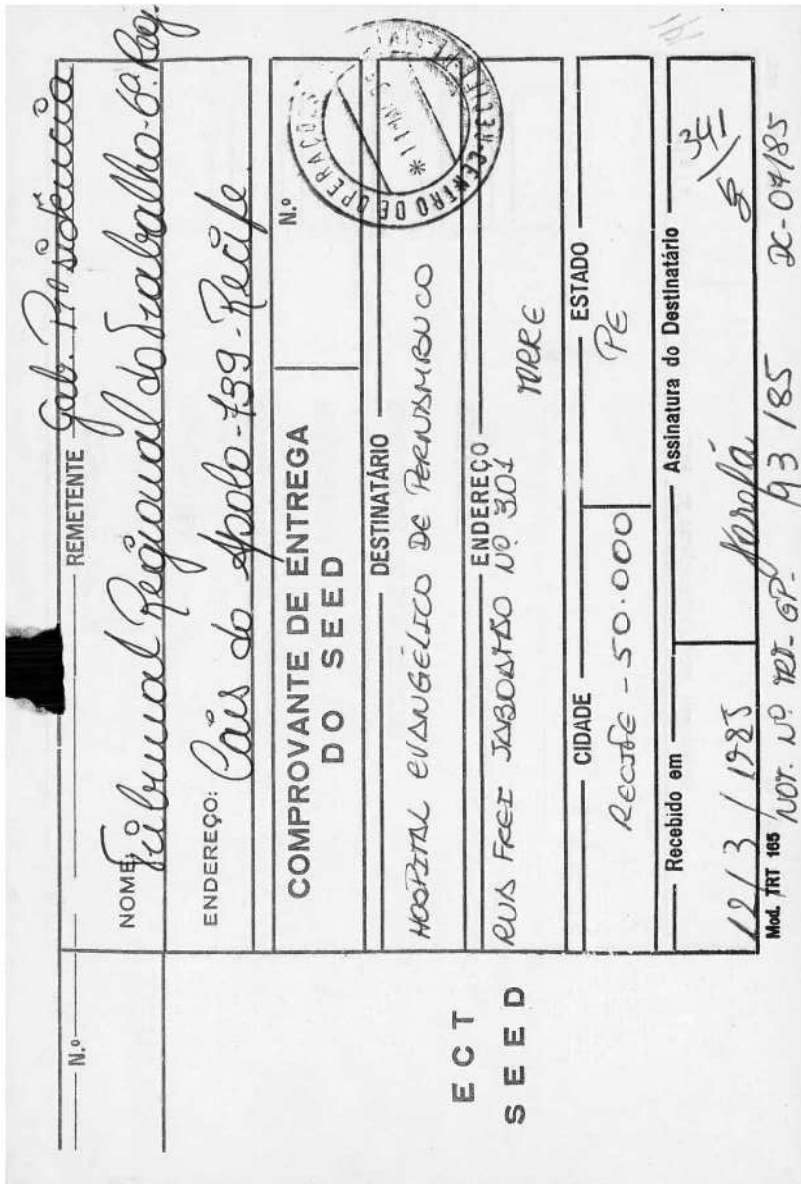 N.º
REMETENTE Gab. Presidência
NOME: Tribunal Regional do Trabalho-6ª Reg.
ENDEREÇO: Cais do Apolo-739-Recife
COMPROVANTE DE ENTREGA
DO SEED
N.º
DESTINATÁRIO
HOSPITAL EVANGÉLICO DE PERNAMBUCO
ENDEREÇO
RUA FREI JABOATÃO Nº 301 TORRE
CIDADE
RECIFE - 50.000
ESTADO
PE
Recebido em
12/3/1985
Assinatura do Destinatário
Mod. TRT 165
NOT. Nº TRT- GP- 93/85 DC-04/85
ECT
SEED
CENTRO DE OPERAÇÕES